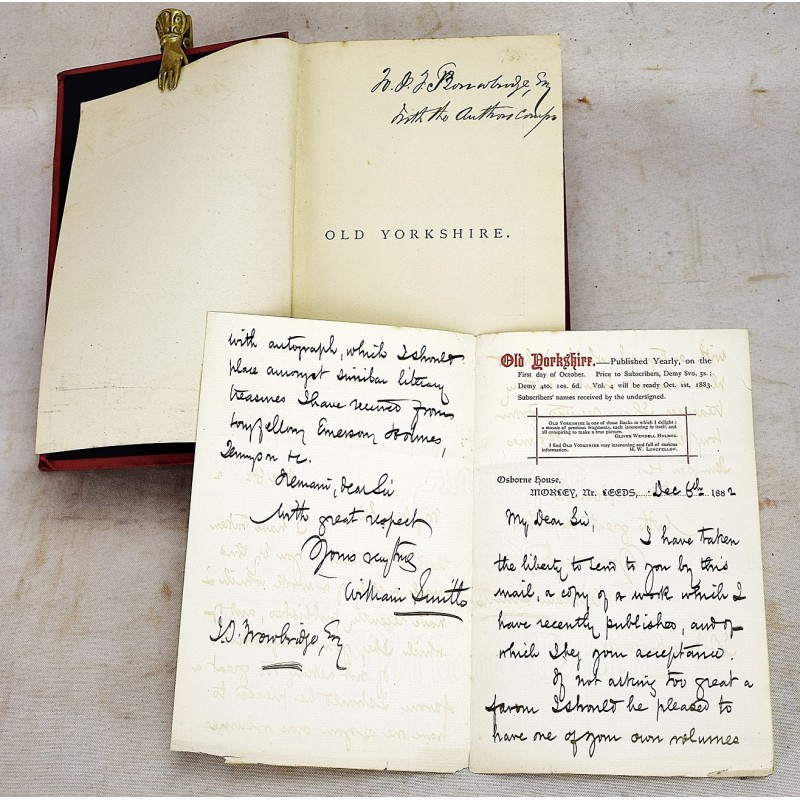 To J. T. Trowbridge, Esq
With the Authors Comps
OLD YORKSHIRE.
with autograph, which I should
place amongst similar literary
treasures I have received from
Longfellow, Emerson, Holmes,
Tennyson &c.
I remain, dear Sir
with great respect
Yours very truly
William Smith
J. T. Trowbridge, Esq
Old Yorkshire,—Published Yearly, on the
First day of October. Price to Subscribers, Demy 8vo, 5s.;
Demy 4to, 10s. 6d. Vol. 4 will be ready Oct. 1st, 1883.
Subscribers' names received by the undersigned.
OLD YORKSHIRE is one of those Books in which I delight;
a mosaic of precious fragments, each interesting in itself, and
all conspiring to make a true picture.
OLIVER WENDELL HOLMES.
I find OLD YORKSHIRE very interesting and full of curious
information. H. W. LONGFELLOW.
Osborne House,
MORLEY, Nr. LEEDS, Dec 6th 1882
My Dear Sir,
I have taken
the liberty to send to you by this
mail, a copy of a work which I
have recently published, and of
which I beg your acceptance.
If not asking too great a
favour I should be pleased to
have one of your own volumes